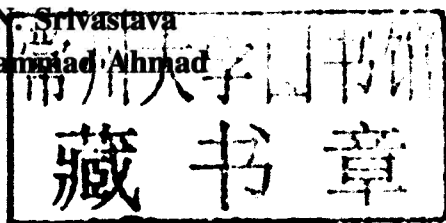 N. Srivastava
ammad Ahmad
常州大学图书馆
藏书章